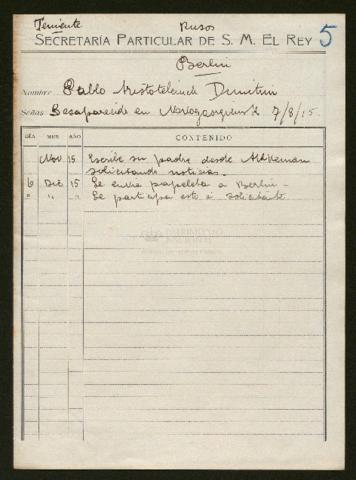 Teniente Rusos
SECRETARÍA PARTICULAR DE S. M. EL REY 5
Berlin
Nombre Pablo Dimitrin
Señas Desaparecido en 7/8/15.
DÍA MES AÑO CONTENIDO
Nov. 15 Escribe su padre desde Akkerman
solicitando noticias.
6 Dic 15 Se envia papeleta a Berlin -
" " " Se participa esto a solicitante
PATRIMONIO
NACIONAL